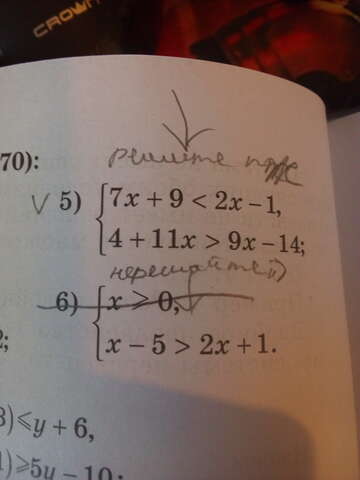 CROWN
70):
решите
5) {7x + 9 < 2x − 1,
4 + 11x > 9x − 14;
не решайте
6) {x ⩾ 0,
x − 5 > 2x + 1.
2;
3)⩽y + 6,
1)⩾5y − 10;